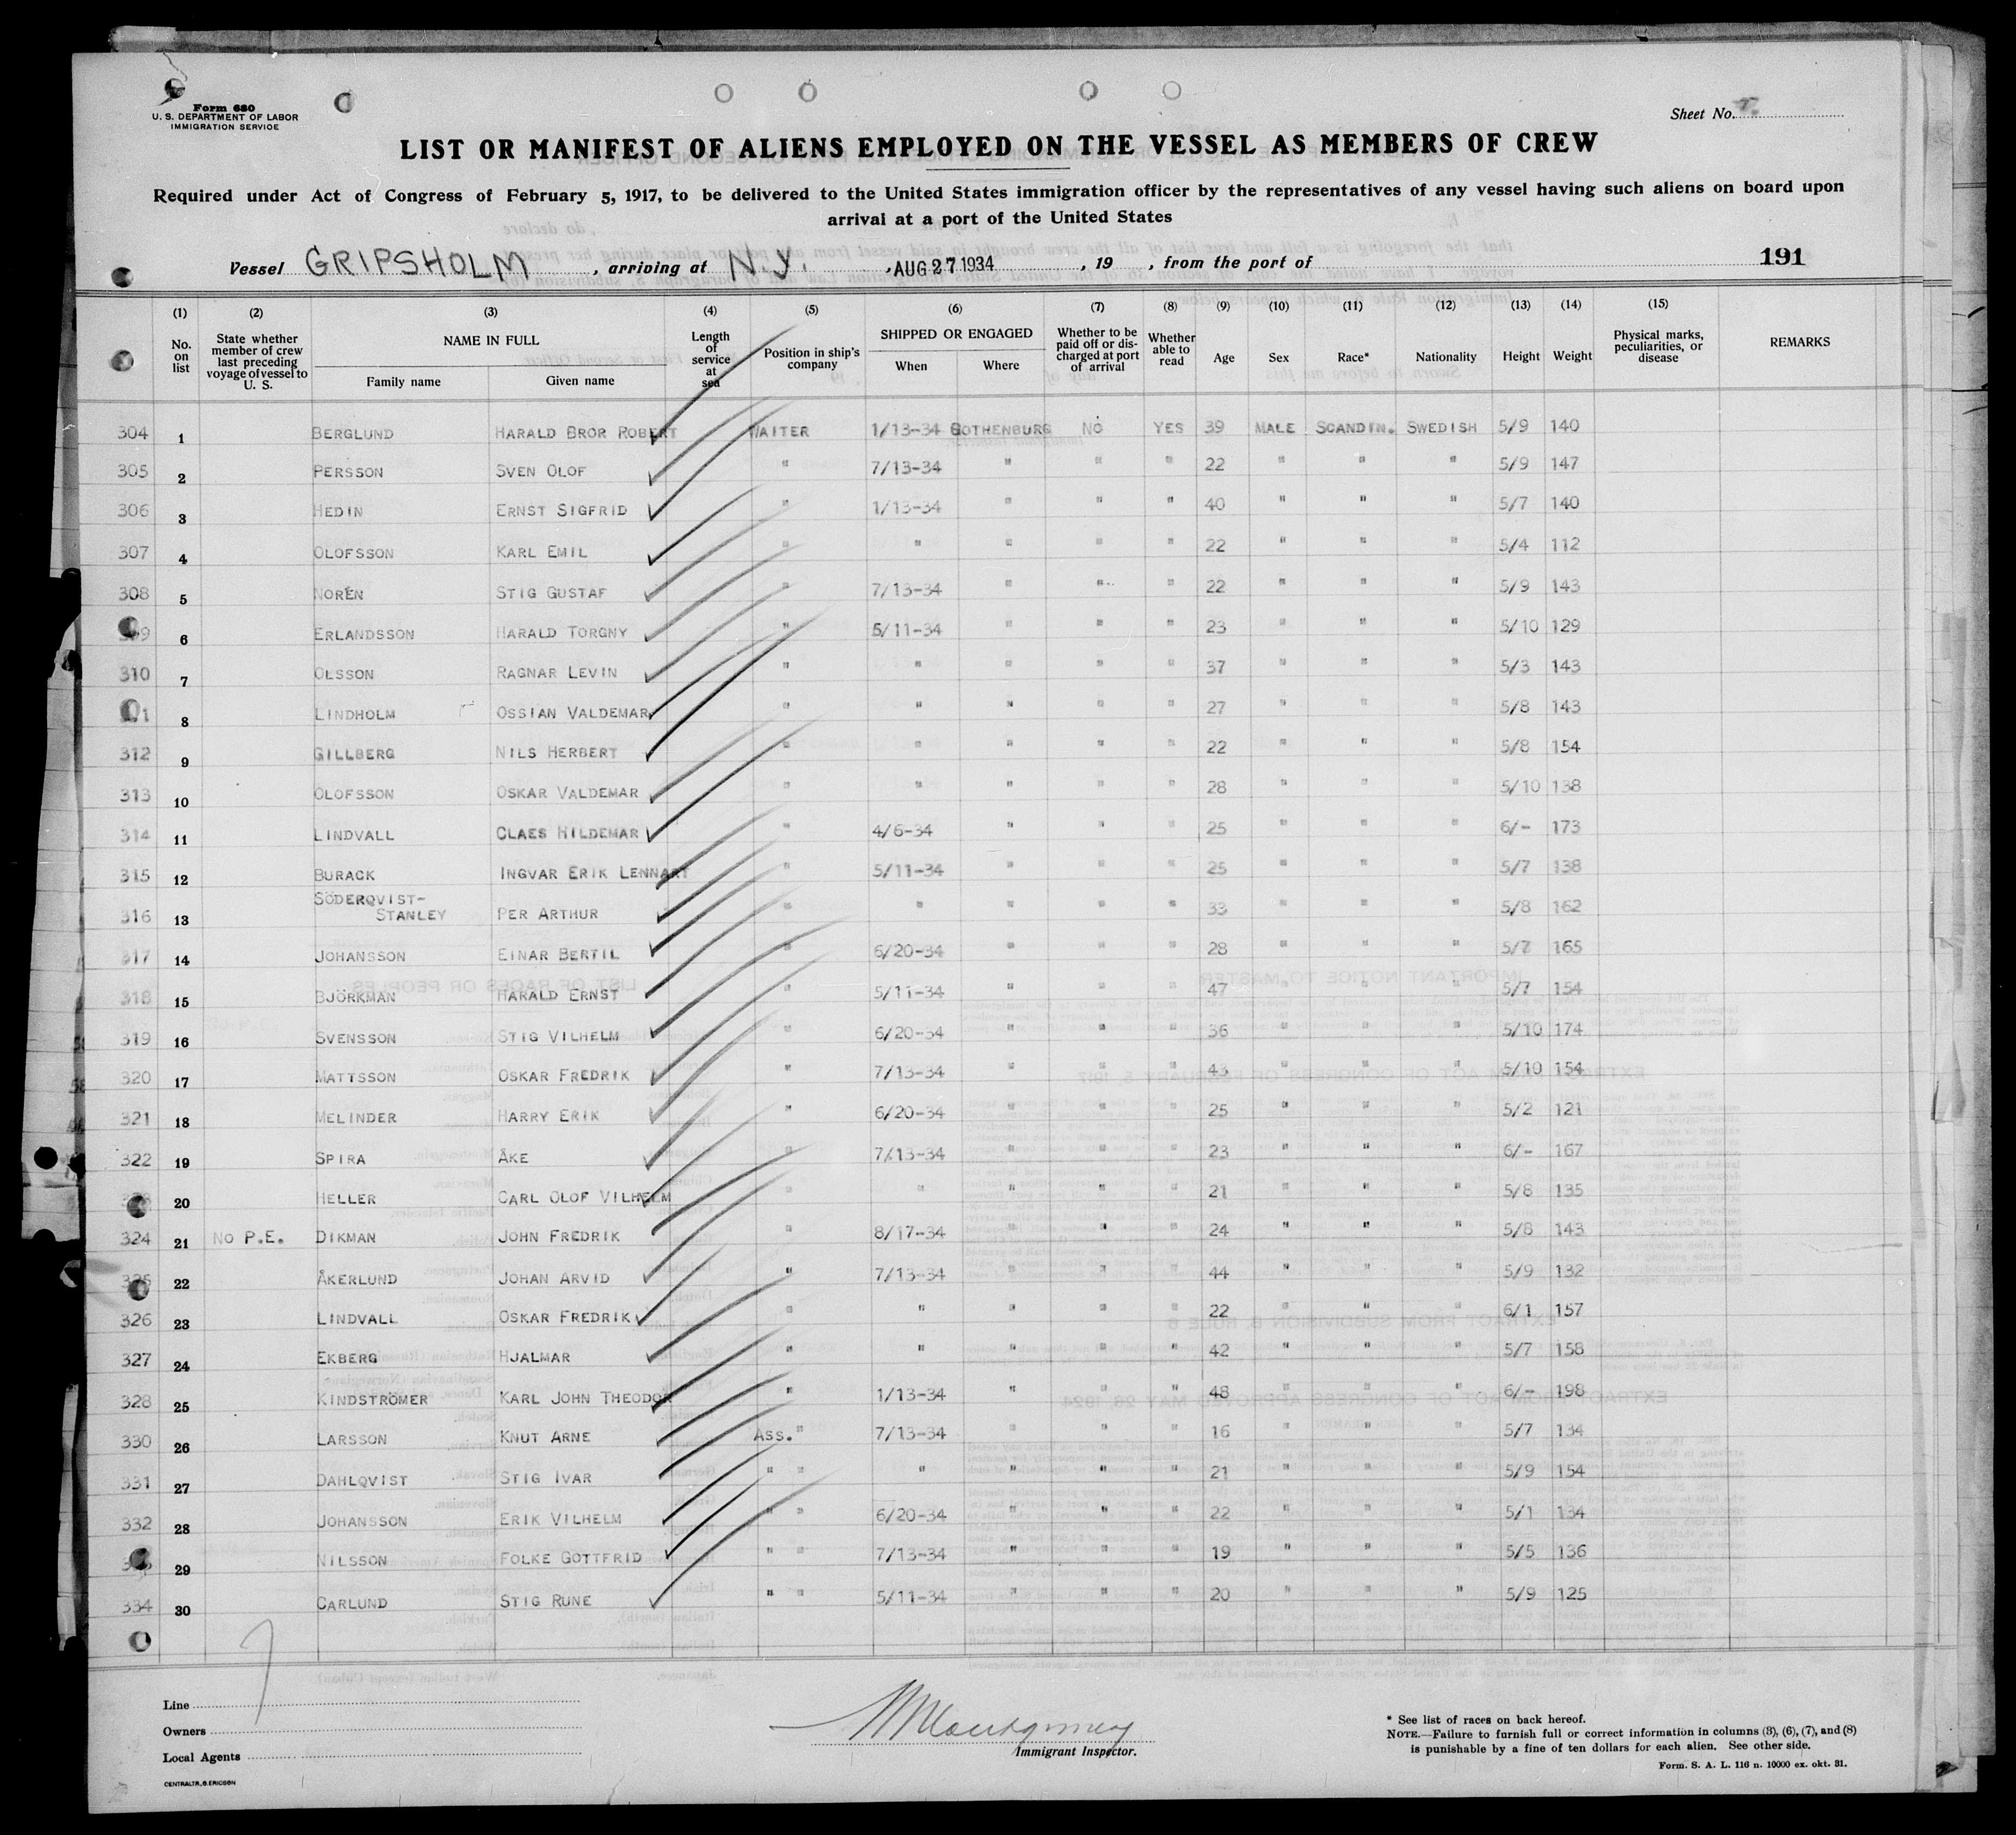 Form 680
U. S. DEPARTMENT OF LABOR
IMMIGRATION SERVICE
Sheet No.
LIST OR MANIFEST OF ALIENS EMPLOYED ON THE VESSEL AS MEMBERS OF CREW
Required under Act of Congress of February 5, 1917, to be delivered to the United States immigration officer by the representatives of any vessel having such aliens on board upon
arrival at a port of the United States
Vessel GRIPSHOLM, arriving at N.Y., AUG 27 1934, 19 , from the port of 191
(1) (2) (3) (4) (5) (6) (7) (8) (9) (10) (11) (12) (13) (14) (15)
No. on list State whether member of crew last preceding voyage of vessel to U. S. NAME IN FULL Family name Given name Length of service at sea Position in ship's company SHIPPED OR ENGAGED When Where Whether to be paid off or discharged at port of arrival Whether able to read Age Sex Race* Nationality Height Weight Physical marks, peculiarities, or disease REMARKS
304 1 BERGLUND HARALD BROR ROBERT WAITER 1/13-34 GOTHENBURG NO YES 39 MALE SCANDIN. SWEDISH 5/9 140
305 2 PERSSON SVEN OLOF " 7/13-34 " " " 22 " " " 5/9 147
306 3 HEDIN ERNST SIGFRID " 1/13-34 " " " 40 " " " 5/7 140
307 4 OLOFSSON KARL EMIL " " " " " 22 " " " 5/4 112
308 5 NORÉN STIG GUSTAF " 7/13-34 " " " 22 " " " 5/9 143
6 ERLANDSSON HARALD TORGNY " 5/11-34 " " " 23 " " " 5/10 129
310 7 OLSSON RAGNAR LEVIN " " " " " 37 " " " 5/3 143
8 LINDHOLM OSSIAN VALDEMAR " " " " " 27 " " " 5/8 143
312 9 GILLBERG NILS HERBERT " " " " " 22 " " " 5/8 154
313 10 OLOFSSON OSKAR VALDEMAR " " " " " 28 " " " 5/10 138
314 11 LINDVALL CLAES HILDEMAR " 4/6-34 " " " 25 " " " 6/- 173
315 12 BURACK INGVAR ERIK LENNART " 5/11-34 " " " 25 " " " 5/7 138
316 13 SÖDERQVIST-
STANLEY PER ARTHUR " " " " " 33 " " " 5/8 162
317 14 JOHANSSON EINAR BERTIL " 6/20-34 " " " 28 " " " 5/7 165
318 15 BJÖRKMAN HARALD ERNST " 5/11-34 " " " 47 " " " 5/7 154
319 16 SVENSSON STIG VILHELM " 6/20-34 " " " 36 " " " 5/10 174
320 17 MATTSSON OSKAR FREDRIK " 7/13-34 " " " 43 " " " 5/10 154
321 18 MELINDER HARRY ERIK " 6/20-34 " " " 25 " " " 5/2 121
322 19 SPIRA ÅKE " 7/13-34 " " " 23 " " " 6/- 167
20 HELLER CARL OLOF VILHELM " " " " " 21 " " " 5/8 135
324 21 NO P.E. DIKMAN JOHN FREDRIK " 8/17-34 " " " 24 " " " 5/8 143
22 ÅKERLUND JOHAN ARVID " 7/13-34 " " " 44 " " " 5/9 132
326 23 LINDVALL OSKAR FREDRIK " " " " " 22 " " " 6/1 157
327 24 EKBERG HJALMAR " " " " " 42 " " " 5/7 158
328 25 KINDSTRÖMER KARL JOHN THEODOR " 1/13-34 " " " 48 " " " 6/- 198
330 26 LARSSON KNUT ARNE ASS. " 7/13-34 " " " 16 " " " 5/7 134
331 27 DAHLQVIST STIG IVAR " " " " " " 21 " " " 5/9 154
332 28 JOHANSSON ERIK VILHELM " " 6/20-34 " " " 22 " " " 5/1 134
29 NILSSON FOLKE GOTTFRID " " 7/13-34 " " " 19 " " " 5/5 136
334 30 CARLUND STIG RUNE " " 5/11-34 " " " 20 " " " 5/9 125
Line
Owners
Local Agents
CENTRALTR. G. ERICSON
Montgomery
Immigrant Inspector.
* See list of races on back hereof.
NOTE.—Failure to furnish full or correct information in columns (3), (6), (7), and (8)
is punishable by a fine of ten dollars for each alien. See other side.
Form. S. A. L. 116 n. 10000 ex. okt. 31.